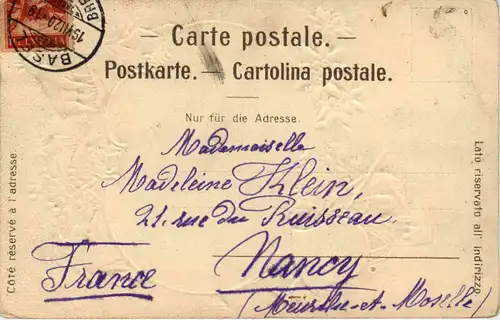 Carte postale.
Postkarte. — Cartolina postale.
Nur für die Adresse.
Mademoiselle
Madeleine Klein,
21. rue du Ruisseau.
Nancy
France
(Meurthe-et-Moselle)
Côté réservé à l'adresse.
Lato riservato all' indirizzo.
HELVETIA
BAS